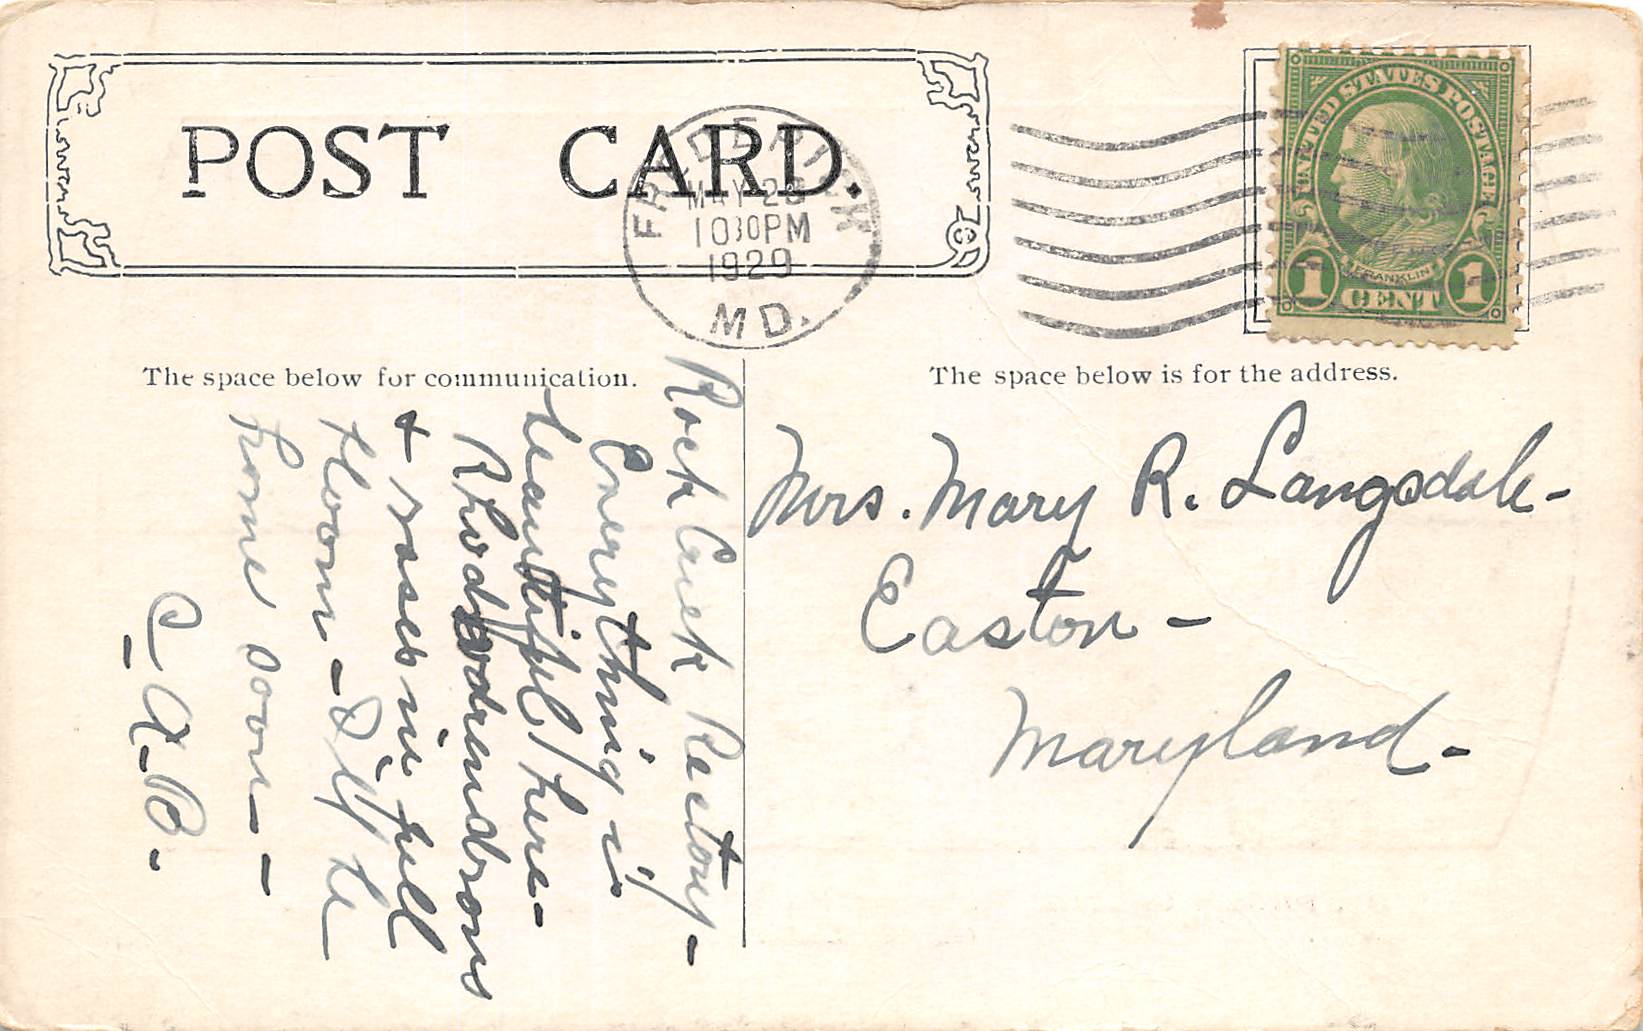 POST CARD.
FREDERICK
MAY 28
1030PM
1929
MD.
UNITED STATES POSTAGE
FRANKLIN
1 CENT 1
The space below for communication.
The space below is for the address.
Rock Creek Rectory-
Everything is
beautiful here-
Rhododrendrons
+ roses in full
bloom - I'll be
home soon -
C.A.B.
Mrs. Mary R. Langsdale-
Easton -
Maryland -